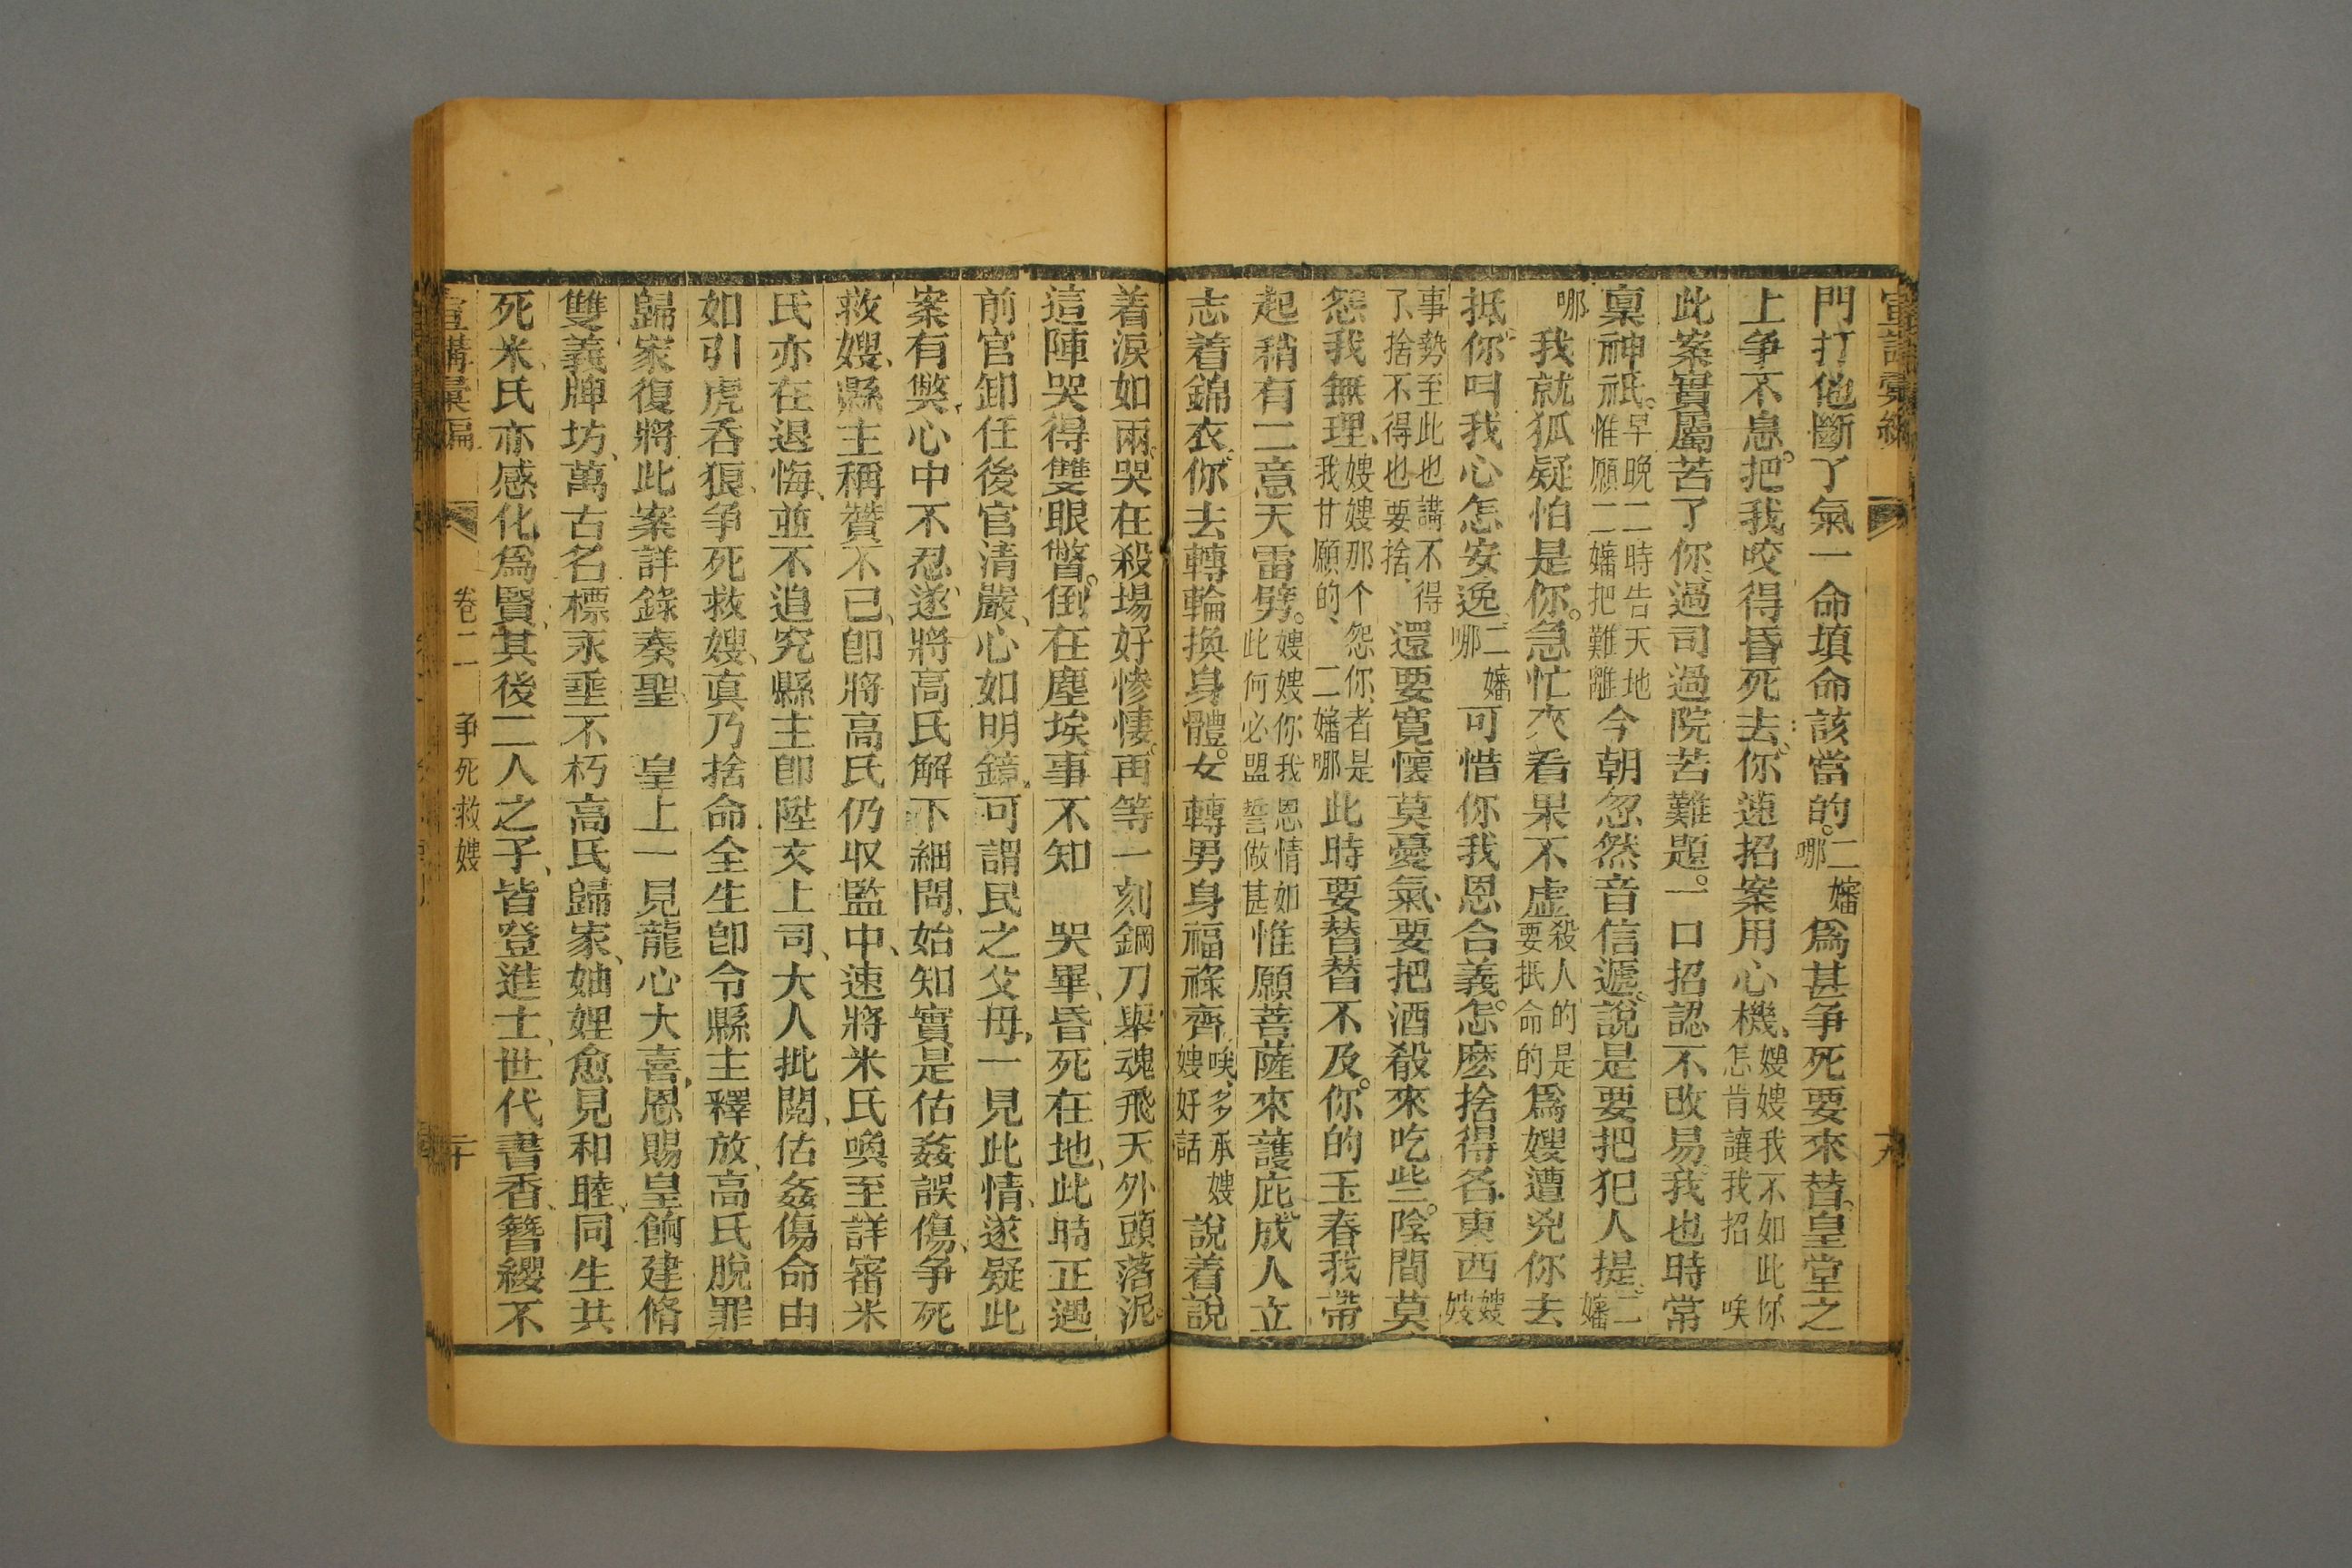 宣講彙編
十九
門打他斷了氣一命填命該當的。二嬸哪爲甚爭死要來替皇堂之
上爭不息。把我咬得昏死去你速招案用心機、嫂嫂我不如此你怎肯讓我招 唉
此案實屬苦了你過司過院苦難題。一口招認不改易我也時常
稟神祇。早晚二時告天地惟願二嬸把難離今朝忽然音信遞。說是要把犯人提、二嬸
哪我就狐疑怕是你。急忙來看果不虛殺人的是要抵命的爲嫂遭兇你去
抵你叫我心怎安逸、二嬸哪可惜你我恩合義。怎麽捨得各東西嫂嫂
事勢至此也講不得了、捨不得也要捨、還要寬懷莫憂氣、要把酒殽來吃些。陰間莫
怨我無理、嫂嫂那个怨你、我甘願的、者是二嬸哪此時要替替不及。你的玉春我帶
起稍有二意天雷劈。嫂嫂你我恩情如此何必盟誓做甚惟願菩薩來護庇。成人立
志着錦衣。你去轉輪換身體。女轉男身福祿齊唉、多承嫂嫂好話說着說
着淚如雨。哭在殺場好慘悽。再等一刻鋼刀舉魂飛天外頭落泥。
這陣哭得雙眼瞥。倒在塵埃事不知 哭畢、昏死在地、此時正遇
前官卸任後官清嚴、心如明鏡、可謂民之父母、一見此情、遂疑此
案有獘、心中不忍、遂將高氏解下細問、始知實是估姦誤傷、爭死
救嫂、縣主稱贊不已、卽將高氏仍收監中、速將米氏喚至詳審米
氏亦在退悔、並不追究縣主卽陞文上司、大人批閱、估姦傷命由
如引虎吞狼、爭死救嫂、真乃捨命全生卽令縣主釋放、高氏脫罪
歸家復將此案詳錄奏聖、 皇上一見龍心大喜、恩賜皇餉建脩
雙義牌坊、萬古名標永垂不朽高氏歸家、妯娌愈見和睦、同生共
死、米氏亦感化爲賢、其後二人之子、皆登進士、世代書香、簪纓不
宣講彙編 卷二 爭死救嫂 二十